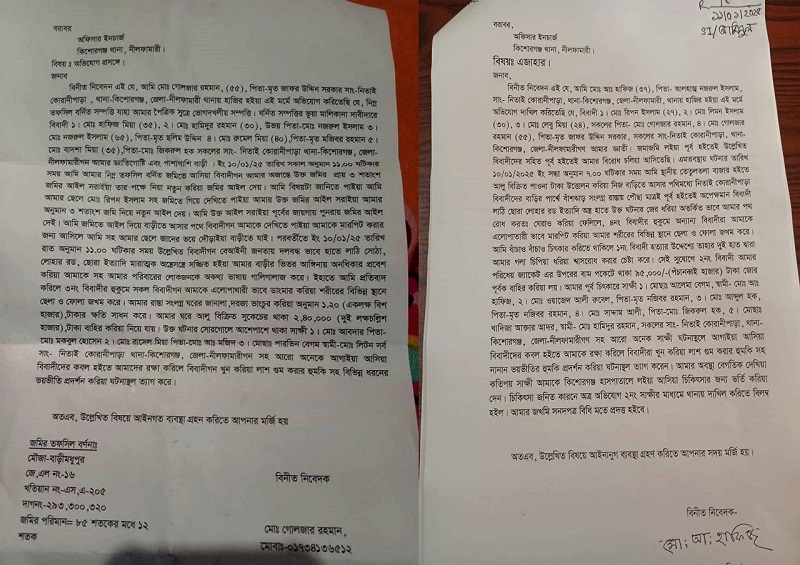 বরাবর,
অফিসার ইনচার্জ
কিশোরগঞ্জ থানা, নীলফামারী।
বিষয় ঃ অভিযোগ প্রসঙ্গে।
জনাব
বিনীত নিবেদন এই যে, আমি মোঃ গোলজার রহমান, (৫৫), পিতা-মৃত জাফর উদ্দিন সরকার সাং-নিতাই
কোরানীপাড়া , থানা-কিশোরগঞ্জ, জেলা-নীলফামারী থানায় হাজির হইয়া এই মর্মে অভিযোগ করিতেছি যে, নিম্ন
তফসিল বর্নিত সম্পত্তি যাহা আমার পৈত্রিক সুত্রে ভোগদখলীয় সম্পত্তি। বর্নিত সম্পত্তির ভুয়া মালিকানা দাবীদারে
বিবাদী ১। মোঃ হাফিজ মিয়া (৩৫) , ২। মোঃ হামিদুর রহমান (৩০), উভয় পিতা-মোঃ নজরুল ইসলাম ৩।
মোঃ নজরুল ইসলাম (৬৫) , পিতা-মৃত ছলিম উদ্দিন ৪। মোঃ রুমেল মিয়া (৪০) ,পিতা-মৃত মজিবর রহমান ৫।
মোঃ বাদশা মিয়া (৩৫) ,পিতা-মোঃ জিকরুল হক সকলের সাং- নিতাই কোরানীপাড়া থানা-কিশোরগঞ্জ, জেলা-
নীলফামারীগন আমার জাতিগোষ্টি এবং পাশাপাশি বাড়ী । ইং ১০/০১/২৫ তারিখ সকাল অনুমান ১১.০০ ঘটিকার
সময় আমি আমার নিম্ন তফসিল বর্নিত জমিতে আসিয়া বিবাদীগন আমার অজান্তে উক্ত জমির প্রায় ৩ শতাংশ
জমির আইল সরাইয়া তার পক্ষে নিয়া নতুন করিয়া জমির আইল দেন। আমি বিষয়টা জানিতে পাইয়া আমি
আমার ছেলে মোঃ রিপন ইসলাম সহ জমিতে গিয়ে দেখিতে পাইয়া আমার উক্ত জমির আইল সরাইয়া আমার
অনুমান ৩ শতাংশ জমি নিয়ে নতুন আইল দেন। আমি উক্ত আইল সরাইয়া পূর্বের জায়গায় পুনরায় জমির আইল
দেই। আমি জমিতে আইল দিয়ে বাড়ীতে আসার পথে বিবাদীগন আমাকে দেখিতে পাইয়া আমাকে মারপিট করার
জন্য আসিলে আমি সহ আমার ছেলে জানের ভয়ে দৌড়াইয়া বাড়ীতে যাই। পরবর্তীতে ইং ১০/০১/২৫ তারিখ
রাত অনুমান ১১.০০ ঘটিকার সময় উল্লেখিত বিবাদীগন বেআইনী জনতায় দলবদ্ধ ভাবে হাতে লাঠি সোঠা,
লোহার রড, ছোরা ইত্যাদি মারাত্মক অস্ত্রসস্ত্রে সজ্জিত হইয়া আমার বাড়ীর ভিতর আঙ্গিনায় অনধিকার প্রবেশ
করিয়া আমাকে সহ আমার পরিবারের লোকজনকে অকথ্য ভাষায় গালিগালাজ করে। ইহাতে আমি প্রতিবাদ
করিলে ৩নং বিবাদীর হুকুমে সকল বিবাদীগন আমাকে এলোপাথারী ভাবে ডাংমার করিয়া শরীরের বিভিন্ন স্থানে
ছেলা ও ফোলা জখম করে। আমার রাস্তা সংলগ্ন ঘরের জানালা,দরজা ভাংচুর করিয়া অনুমান ১.২০ (একলক্ষ বিশ
হাজার),টাকার ক্ষতি সাধন করে। আমার ঘরে আলু বিক্রিত সুকেচের থাকা ২,৪০,০০০ (দুই লক্ষচল্লিশ
হাজার),টাকা বাহির করিয়া নিয়ে যায়। উক্ত ঘটনার সোরগোলে আশেপাশে থাকা সাক্ষী ১। মোঃ আবদার পিতা-
মোঃ মকবুল হোসেন ২। মোঃ রাসেল মিয়া পিতা-মোঃ আঃ মজিদ ৩। মোছাঃ পারভিন বেগম স্বামী-মোঃ লিটন সর্ব
সাং- নিতাই কোরানীপাড়া থানা-কিশোরগঞ্জ, জেলা-নীলফামারীগন সহ আরো অনেকে আগাইয়া আসিয়া
বিবাদীদের কবল হইতে আমাদের রক্ষা করিলে বিবাদীগন খুন করিয়া লাশ গুম করার হুমকি সহ বিভিন্ন ধরনের
ভয়ভীতি প্রদর্শন করিয়া ঘটনাস্থল ত্যাগ করে।
অতএব, উল্লেখিত বিষয়ে আইনগত ব্যবস্থা গ্রহন করিতে আপনার মর্জি হয়
জমির তফসিল বর্ণনাঃ
মৌজা-বাড়ীমধুপুর
জে,এল নং-১৬
খতিয়ান নং-এস,এ-২০৫
দাগনং-২৯৩,৩০০,৩২০
জমির পরিমান= ৮৫ শতকের মধে ১২
শতক
বিনীত নিবেদক
মোঃ গোলজার রহমান,
মোবাঃ-০১৭৩৪১৩৬৫১২
১১/০১/২০২৫
বরাবর,
অফিসার ইনচার্জ
কিশোরগঞ্জ থানা, নীলফামারী।
বিষয়ঃ এজাহার।
জনাব,
বিনীত নিবেদন এই যে, আমি মোঃ আঃ হাফিজ (৩৭), পিতা- আলহাজ্ব নজরুল ইসলাম,
সাং- নিতাই কোরানীপাড়া, থানা-কিশোরগঞ্জ, জেলাঃ নীলফামারী, থানায় হাজির হইয়া এই মর্মে
অভিযোগ দাখিল করিতেছি যে, বিবাদী ১। মোঃ রিপন ইসলাম (২৭), ২। মোঃ লিমন ইসলাম
(৩০), ৩। মোঃ লেবু মিয়া (২৪), সকলের পিতা- মোঃ গোলজার রহমান, ৪। মোঃ গোলজার
রহমান (৫৫), পিতা-মৃত জাফর উদ্দিন সরকার, সকলের সাং-নিতাই কোরানীপাড়া, থানা-
কিশোরগঞ্জ, জেলা-নীলফামারীগণ আমার জাতী। জমাজমি লইয়া পূর্ব হইতেই উল্লেখিত
বিবাদীদের সহিত পূর্ব হইতেই আমার বিরোধ চলিয়া আসিতেছি। এমতবস্থায় ঘটনার তারিখ
১০/০১/২০২৫ ইং সন্ধা অনুমান ৭.০০ ঘটিকার সময় আমি স্থানীয় তেতুলতলা বাজার হইতে
আলু বিক্রিত পাওনা টাকা উত্তোলন করিয়া নিজ বাড়িতে আসার পথিমধ্যে নিতাই কোরানীপাড়া
বিবাদীদের বাড়ির পার্শ্বে বাঁশঝাড় সংলগ্ন রাস্তায় পৌছা মাত্রই পূর্ব হইতেই অপেক্ষমান বিবাদী
লাঠি ছোরা লোহার রড ইত্যাদি অস্ত্র হাতে উক্ত ঘটনার জের ধরিয়া অতর্কিত ভাবে আমার পথ
রোধ করতঃ ঘেরাও করিয়া ফেলিলে, ৪নং বিবাদীর হুকুমে অন্যান্য বিবাদীরা আমাকে
এলোপাতারী ভাবে মারপিট করিয়া আমার শরীরের বিভিন্ন স্থানে ছেলা ও ফোলা জখম করে।
আমি বাঁচাও বাঁচাও চিৎকার করিতে থাকিলে ১নং বিবাদী হত্যার উদ্দেশ্যে তাহার দুই হাত দ্বারা
আমার গলা চিপিয়া ধরিয়া শ্বাসরোধ করার চেষ্টা করে। সেই সুযোগে ২নং বিবাদী আমার
পরিধেয় জ্যাকেট এর উপরের বাম পকেটে থাকা ৯৫,০০০/-(পঁচানব্বই হাজার) টাকা জোর
পূর্বক বাহির করিয়া লয়। আমার পূর্ব চিৎকারে সাক্ষী ১। মোছাঃ আলেমা বেগম, স্বামী- মোঃ আঃ
হাফিজ, ২। মোঃ ওয়াজেদ আলী রুবেল, পিতা-মৃত নজিবর রহমান, ৩। মোঃ আব্দুল হক,
পিতা-মৃত নজিবর রহমান, ৪। মোঃ সাদ্দাম আলী, পিতা-মোঃ জিকরুল হক, ৫। মোছাঃ
খাদিজা আক্তার আদর, স্বামী- মোঃ হামিদুর রহমান, সকলের সাং- নিতাই কোরানীপাড়া, থানা-
কিশোরগঞ্জ, জেলা-নীলফামারীগণ সহ আরো অনেক সাক্ষী ঘটনাস্থলে আগাইয়া আসিয়া
বিবাদীদের কবল হইতে আমাকে রক্ষা করিলে বিবাদীরা খুন করিয়া লাশ গুম করার হুমকি সহ
নানান ভয়ভীতির হুমকি প্রদর্শন করিয়া ঘটনাস্থল ত্যাগ করে। আমার অবস্থা বেগতিক দেখিয়া
কতিপয় সাক্ষী আমাকে কিশোরগঞ্জ হাসপাতালে লইয়া আসিয়া চিকিৎসার জন্য ভর্তি করিয়া
দেন। চিকিৎসা জনিত কারনে অত্র অভিযোগ ২নং সাক্ষীর মাধ্যমে থানায় দাখিল করিতে বিলম্ব
হইল। আমার জখমি সনদপত্র বিধি মতে প্রদত্ত হইবে।
অতএব, উল্লেখিত বিষয়ে আইনানুগ ব্যবস্থা গ্রহণ করিতে আপনার সদয় মর্জি হয়।
বিনীত নিবেদক-
মো: আ: হাফিজ